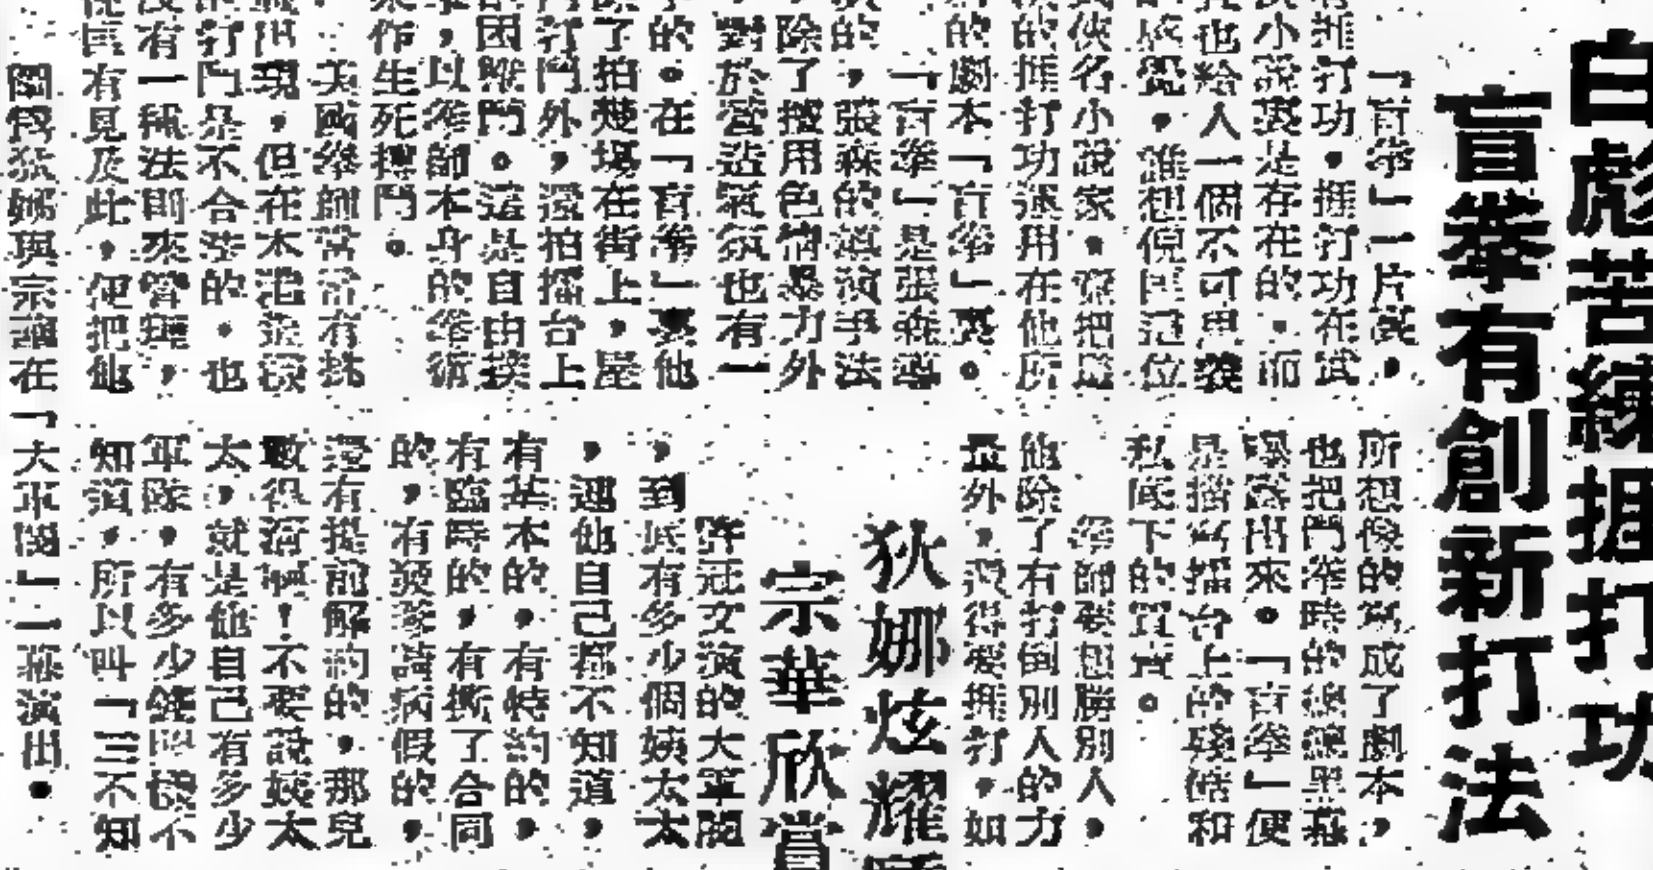 白彪苦練捱打功
盲拳有創新打法
「盲拳」一片裏,
有捱打功,捱打功在武
俠小說裏是存在的,而
也給人一個不可思議
的感覺,誰想倪匡這位
武俠名小說家。竟把這
的捱打功運用在他所
的劇本「盲拳」裏。
「盲拳」是張森導
的,張森的導演手法
除了擅用色情暴力外
對於營造氣氛也有一
手的。在「盲拳」裏他
除了拍場在街上,屋
打鬥外,還拍擂台上
的困獸鬥。這是自由搏
,以拳師本身的拳術
來作生死搏鬥。
美國拳師常常有挑
戰出現,但在本港這種
的打鬥是不合法的。也
沒有一種法則來管理,
倪匡有見及此,便把他
所想像的寫成了劇本,
也把鬥拳時的總總黑幕
暴露出來。「盲拳」便
是描寫擂台上的殘酷和
私底下的買賣。
拳師要想勝別人,
他除了有打倒別人的力
量外,還得要捱打,如
狄娜炫耀
宗華欣賞
許冠文演的大軍閥
,到底有多少個姨太太
,連他自己都不知道,
有基本的,有特約的,
有臨時的,有撕了合同
的,有病假的,
還有提前解約的,那兒
數得清啊!不要說姨太
太,就是他自己有多少
軍隊,有多少不
知道,所以叫「三不知
圖為狄娜與宗華在「大軍閥」一幕演出。